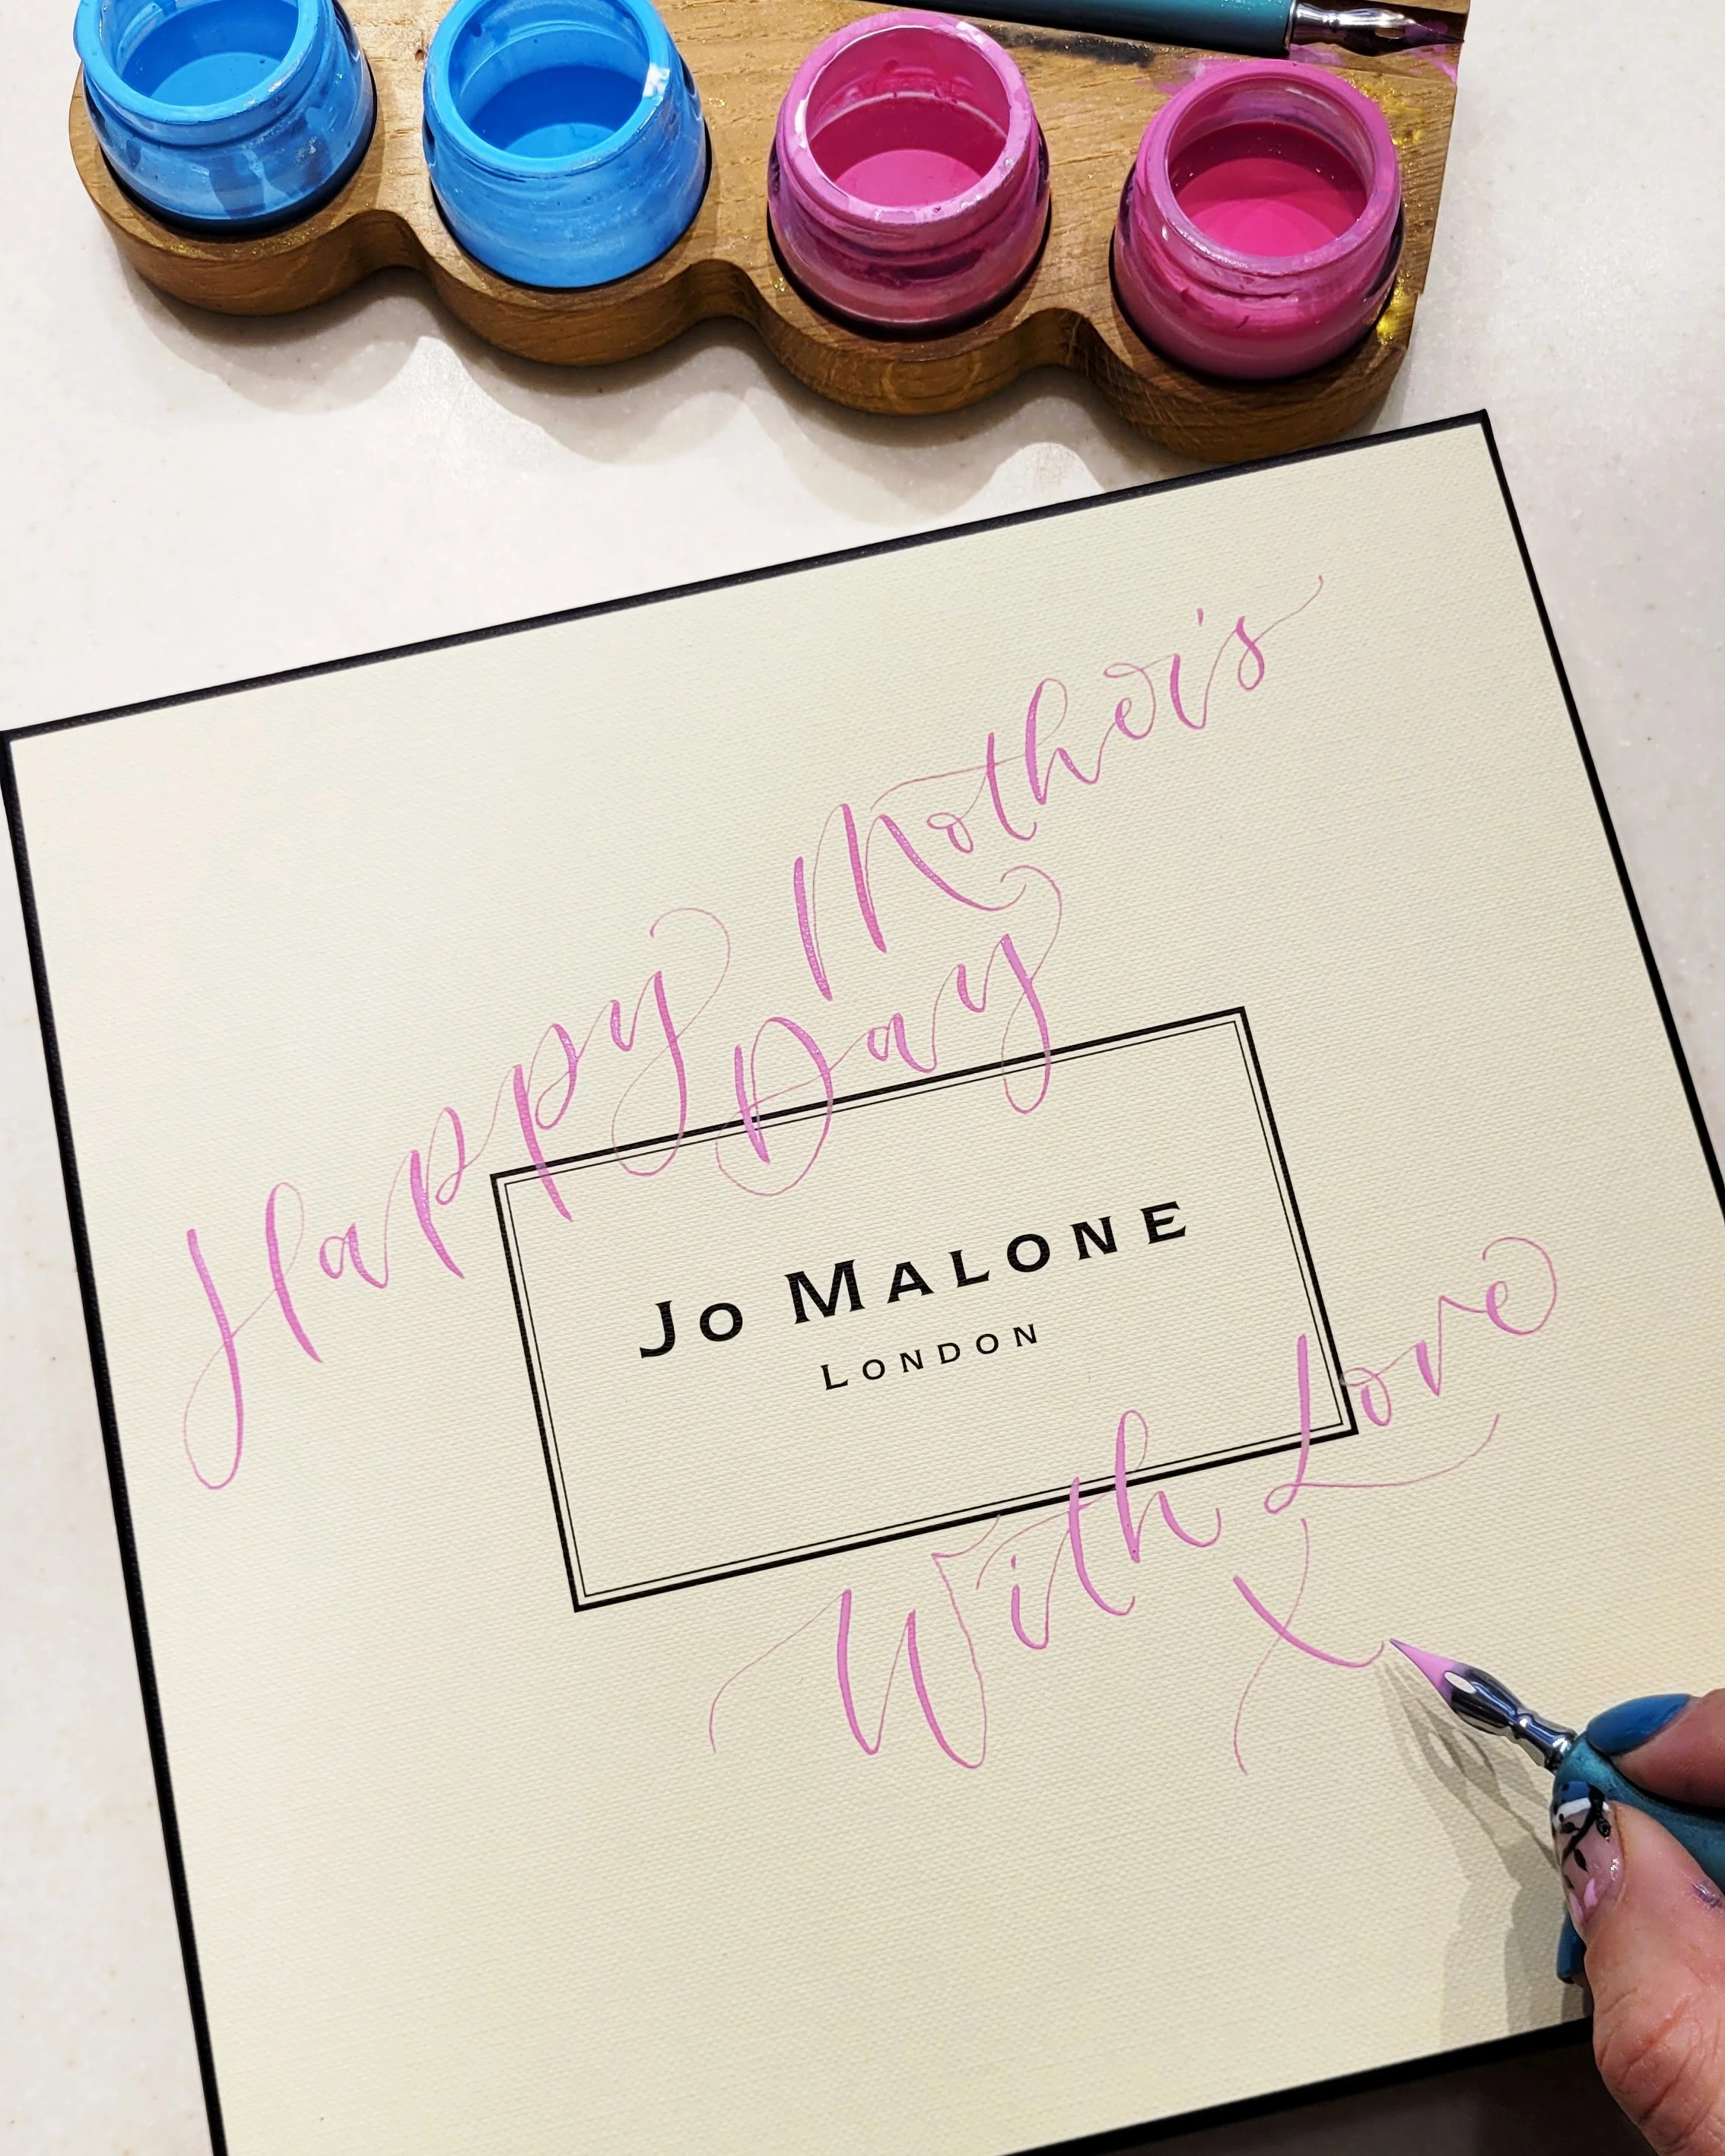 Happy Mother's
Day
JO MALONE
LONDON
With Love
X